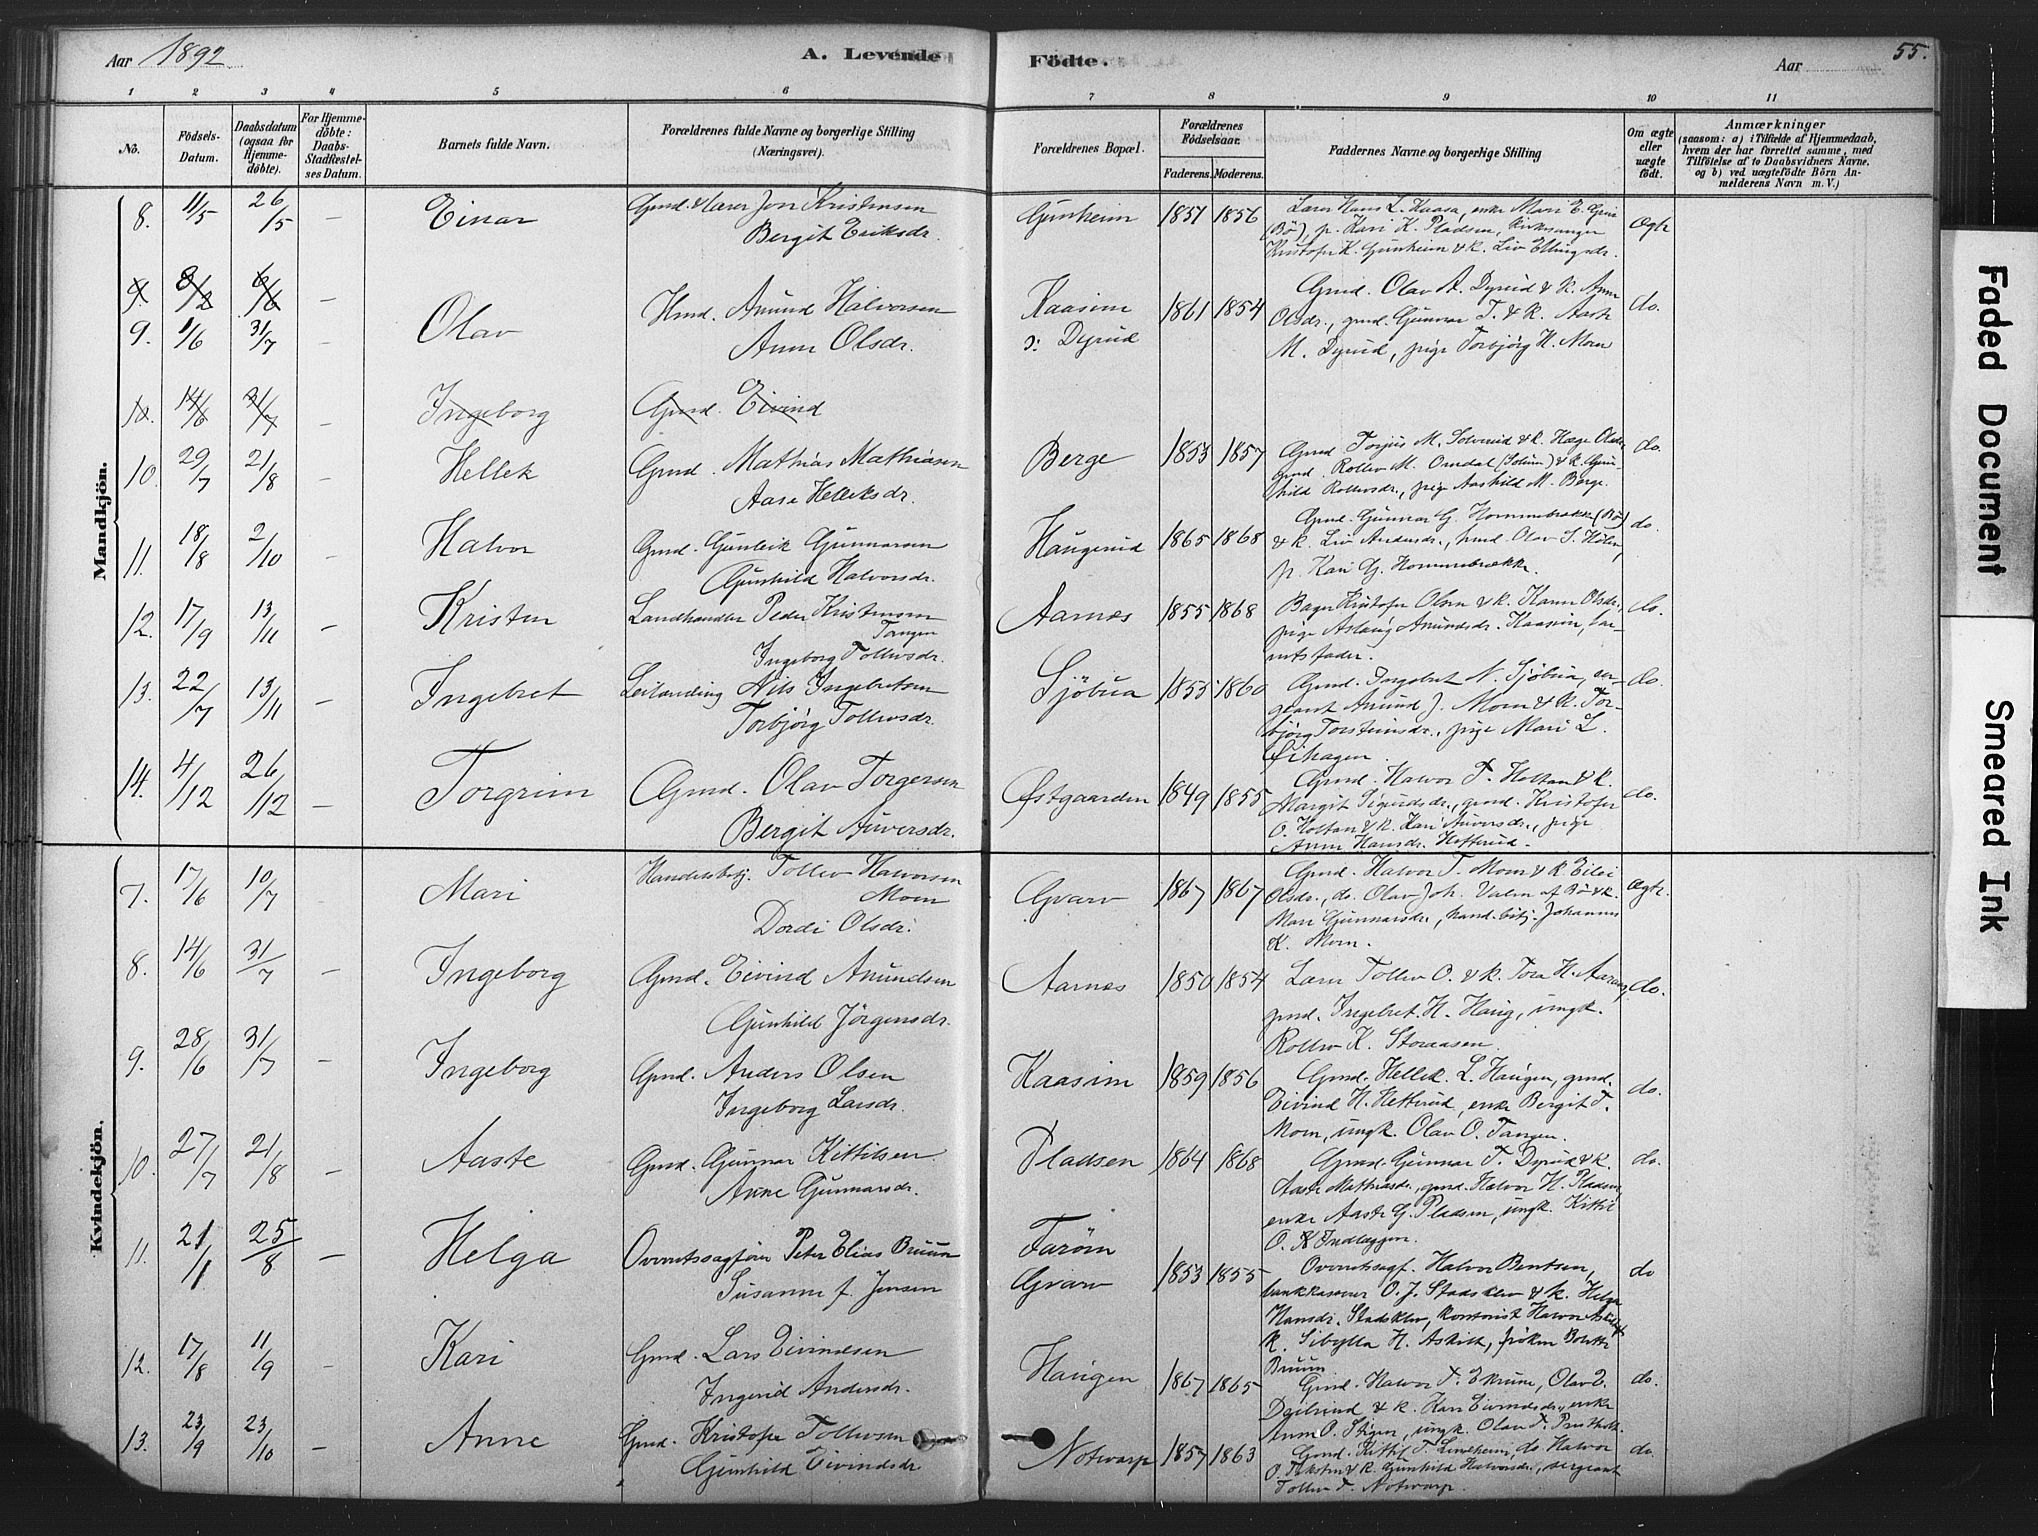 Aar 1892 A. Levende Födte. Aar 55.
1 2 3 4 5 6 7 8 9 10 11
No. Födsels-Datum. Daabsdatum (ogsaa for Hjemmedöbte). For Hjemmedöbte: Daabs-Stadfæstelses Datum. Barnets fulde Navn. Forældrenes fulde Navne og borgerlige Stilling (Næringsvei). Forældrenes Bopæl. Forældrenes Födselsaar. Faderens. Moderens. Faddernes Navne og borgerlige Stilling Om ægte eller uægte født. Anmærkninger (saasom: a) i Tilfælde af Hjemmedaab, hvem der har forrettet samme, med Tilföielse af to Daabsvidners Navne, og b) ved uægtefödte Börn Anmelderens Navn m. V.)
Mandkjön.
8. 11/5 26/5 – Einar Gmd. & lærer Jon Kristensen Gunheim 1857 1856 Ægte
Bergit Eriksdr.
Kristofer K. Gunheim & k. Liv Ellingsdr.
9. 8/2 6/6 –
9. 1/6 31/7 Olav Hmd. Amund Halvorsen Kaasim 1861 1854 Gmd. Olav A. Dyrud & k. Anne do.
Anne Olsdr. o: Dyrud Olsdr., gmd. Gunnar T. & k. Aaste
M. Dyrud, pige Torbjørg H. Moen
10. 14/6 31/7 – Ingeborg Gmd. Eivind
10. 29/7 21/8 – Hellek Gmd. Mathias Mathiasen Berge 1853 1857 do.
Aase Helleksdr. hild Rollevsdr., pige Aashild M. Berge.
11. 18/8 2/10 – Halvor Gmd. Gunleik Gunnarsen Haugerud 1865 1868 Gmd. Gunnar G. Hommebrække (Bø) do.
Gunhild Halvorsdr. & k. Liv Andersdr.,
p. Kari G. Hommebrække.
12. 17/9 13/11 – Kristen Landhandler Peder Kristensen Aarnes 1855 1868 Bager Kristofer Olsen & k. Karen Olsdr., do.
Tangen pige Aslaug Amundsdr. Kaasim, bar-
Ingeborg Tollevsdr. nets fader.
13. 22/7 13/11 – Ingebret Leilending Nils Ingebretsen Sjöbua 1855 1860 Gmd. Ingebret N. Sjöbua, ser- do.
Torbjörg Tollevsdr. geant Amund J. Moen & k. Tor-
björg Torsteinsdr., pige Mari L.
Øihagen.
14. 4/12 26/12 – Torgrim Gmd. Olav Torgersen Østgaarden 1849 1855 Gmd. Halvor T. Holtan & k. do.
Bergit Auversdr. Margit Sigurdsdr., gmd. Kristofer
O. Holtan & k. Kari Auversdr., pige
Anne Hansdr. Hetterud.
Kvindekjön.
7. 17/6 10/7 Mari Handelsbetj. Tollev Halvorsen Gvarv 1867 1867 Gmd. Halvor T. Moen & k. Eilei Ægte.
Moen Olsdr., do. Olav Joh. Valen af Bø & k.
Dordi Olsdr. Mari Gunnarsdr., hand.betj. Johannes
K. Moen.
8. 14/6 31/7 – Ingeborg Gmd. Eivind Amundsen Aarnes 1850 1854 Lærer Tollev O. & k. Tora H. Aarnes, do.
Gunhild Jörgensdr. gmd. Ingebret H. Haug, ungk.
Rollev K. Storaasen.
9. 28/6 31/7 – Ingeborg Gmd. Anders Olsen Kaasim 1859 1856 Gmd. Hellek L. Haugen, gmd. do.
Ingeborg Larsdr. Eivind H. Hetterud, enke Bergit T.
Moen, ungk. Olav O. Tangen.
10. 27/7 21/8 – Aaste Gmd. Gunnar Kittilsen Pladsen 1864 1868 Gmd. Gunnar T. Dyrud & k. do.
Anne Gunnarsdr. Aaste Mathiasdr., gmd. Halvor H. Pladsen,
enke Aaste G. Pladsen, ungk. Kittil
O. K Indlæggen.
11. 21/1 25/8 – Helga Overretssagförer Peter Elias Bruun Faröm 1853 1855 Overretssagf. Halvor Bentsen, do
Susanne f. Jensen Gvarv bankkasserer O. J. Stadsklev & k. Helga
Hansdr. Stadsklev, kontorist Halvor Askilt
k. Sibylla H. Askilt, fröken Bolette
Bruun
12. 17/8 11/9 – Kari Gmd. Lars Eivindsen Haugen 1867 1865 Gmd. Halvor T. Ekrene, Olav E. do.
Ingerid Andersdr. & k. Kari Eivindsdr., enke
Anne O. Stigen, ungk. Olav T.
13. 23/9 23/10 – Anne Gmd. Kristofer Tollevsen Notvarp 1857 1863 Gmd. Kittil T. Lindheim, do. Halvor do.
Gunhild Eivindsdr. & k. Gunhild Halvorsdr., sergeant
Tollev T. Notvarp.
Faded Document
Smeared Ink